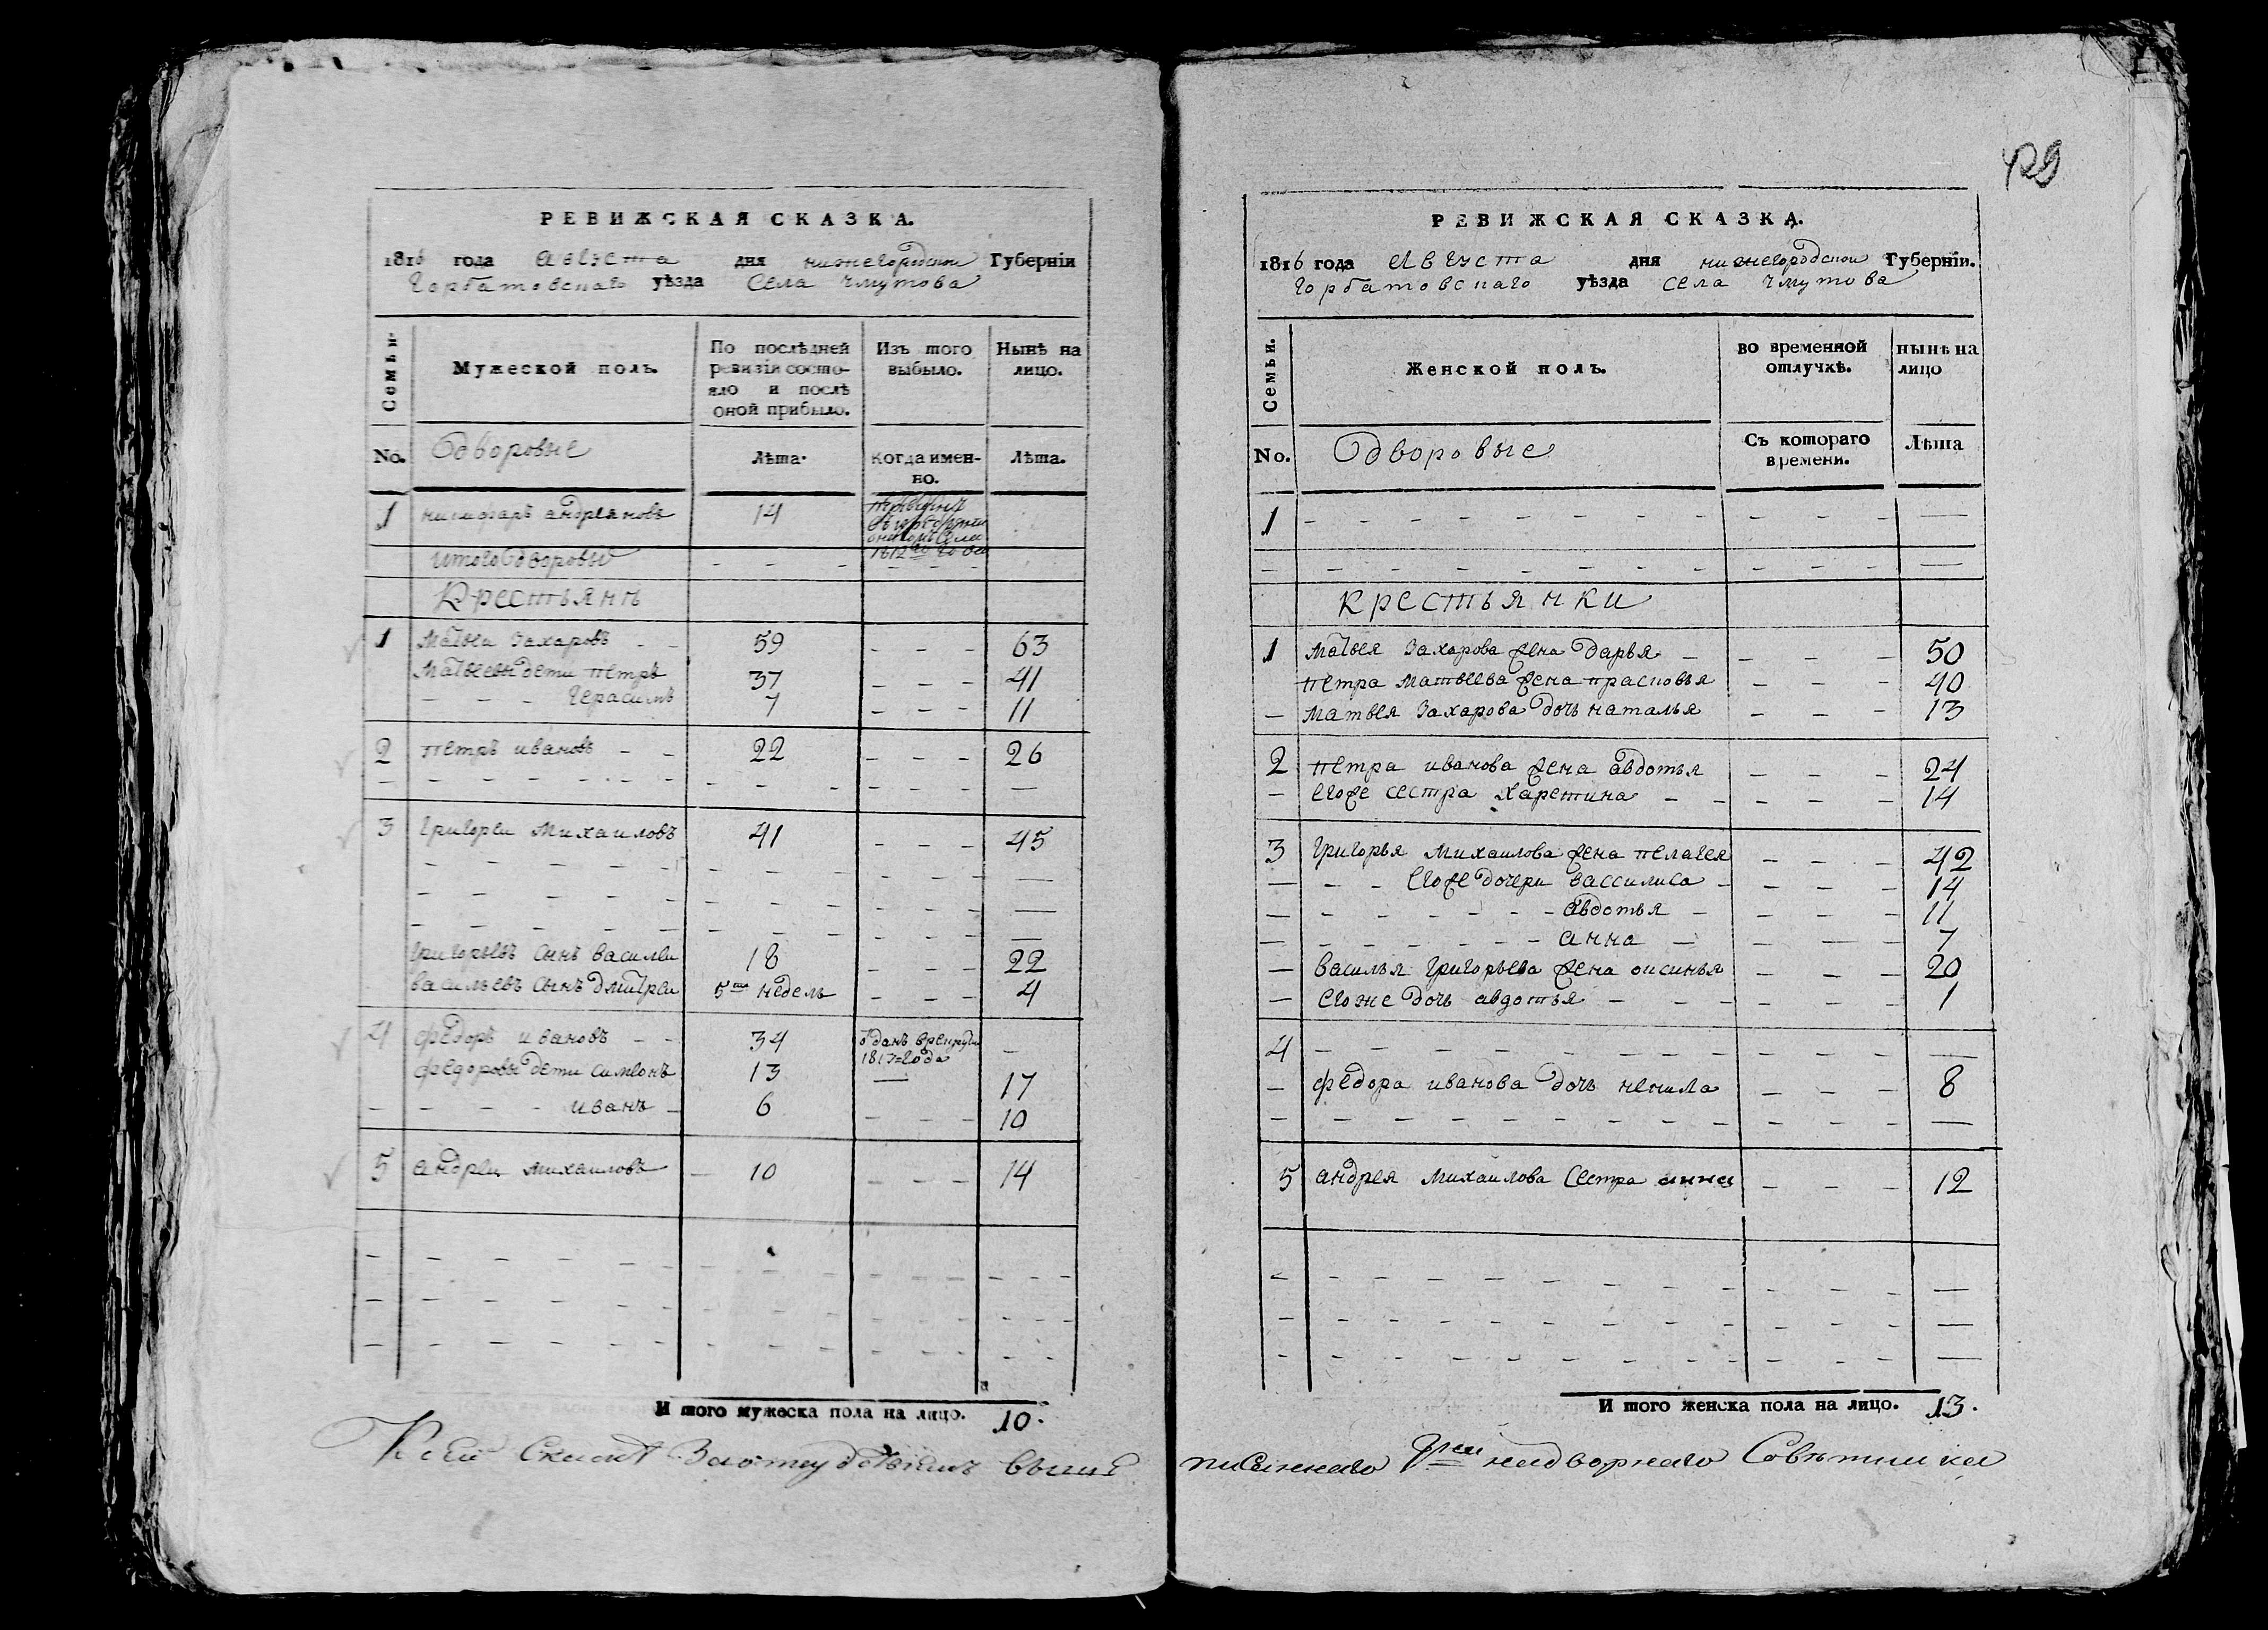 429
РЕВИЖСКАЯ СКАЗКА.
1816 года Августа дня нижегородской Губерніи
Горбатовскаго уѣзда Села Чмутова
Семьи.
Мужеской полъ.
По послѣдней ревизіи состояло и послѣ оной прибыло.
Изъ того выбыло.
Нынѣ на лицо.
No. Дворовые Лѣта. Когда именно. Лѣта.
1 андреяновъ 14 1812го года
итого дворовы - - - - - -
Крестьянъ
1 Матвеи Захаровъ - - 59 - - - 63
Матвеевы дети петръ 37 - - - 41
- - - Герасимъ 7 - - - 11
2 петръ ивановъ - - 22 - - - 26
3 Григореи Михаиловъ 41 - - - 45
Григорьевъ сынъ василеи 18 - - - 22
васильевъ сынъ дмитреи 5ти недель - - - 4
4 федоръ ивановъ - - 34 отданъ врекруты 1813=года -
федоровы дети симеонъ 13 — 17
- - - - иванъ - 6 - - - 10
5 андреи михаиловъ - 10 - - - 14
И того мужеска пола на лицо. 10.
РЕВИЖСКАЯ СКАЗКА.
1816 года Августа дня нижегородской Губерніи.
горбатовскаго уѣзда села Чмутова
Семьи.
Женской полъ.
во временной отлучкѣ.
нынѣ на лицо
No. Дворовые Съ котораго времени. Лѣта
1 - - - - - - - - - - - —
крестьянки
1 матвея Захарова жена дарья - - - - 50
петра матвеева жена прасковья - - - 40
- матвея Захарова дочь наталья - - - 13
2 петра иванова жена авдотья - - - 24
- егоже сестра Харетина - - - - - 14
3 григорья михаилова жена пелагея - - - 42
- - - егоже дочери вассилиса - - - - 14
- - - - - - - авдотья - - - - 11
- - - - - - - анна - - - - 7
- василья григорьева жена оксинья - - - 20
- егоже дочь авдотья - - - - - - 1
4 - - - - - - - - - - - —
- федора иванова дочь ненила - - - 8
5 андрея михаилова сестра анна - - - 12
И того женска пола на лицо. 13.
К сеи Скаске выше
писаннаго надворнаго Советника